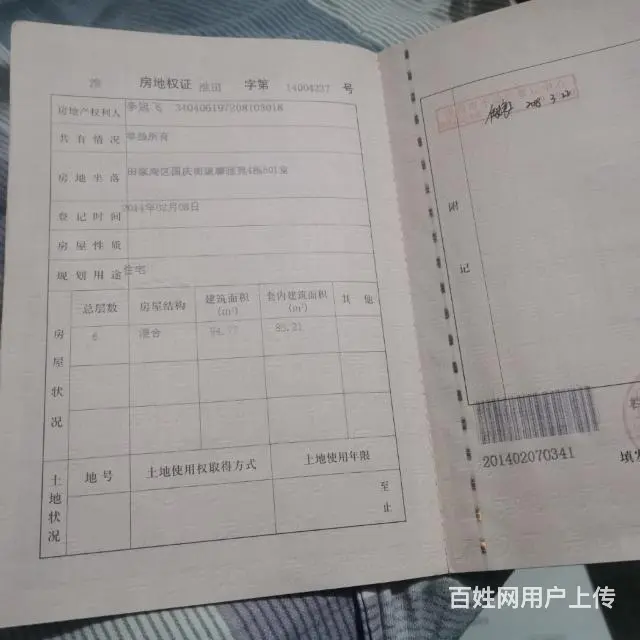 淮 房地权证 淮田 字第 14004237 号
房地产权利人 340406197208103818
共有情况 单独所有
房地坐落 田家庵区国庆街道
登记时间 2014年02月08日
房屋性质
规划用途 住宅
房屋状况
总层数 房屋结构 建筑面积(㎡) 套内建筑面积(㎡) 其他
6 混合 94.77 85.21
土地状况
地号 土地使用权取得方式 土地使用年限
至
止
附记
201402070341
填发
百姓网用户上传